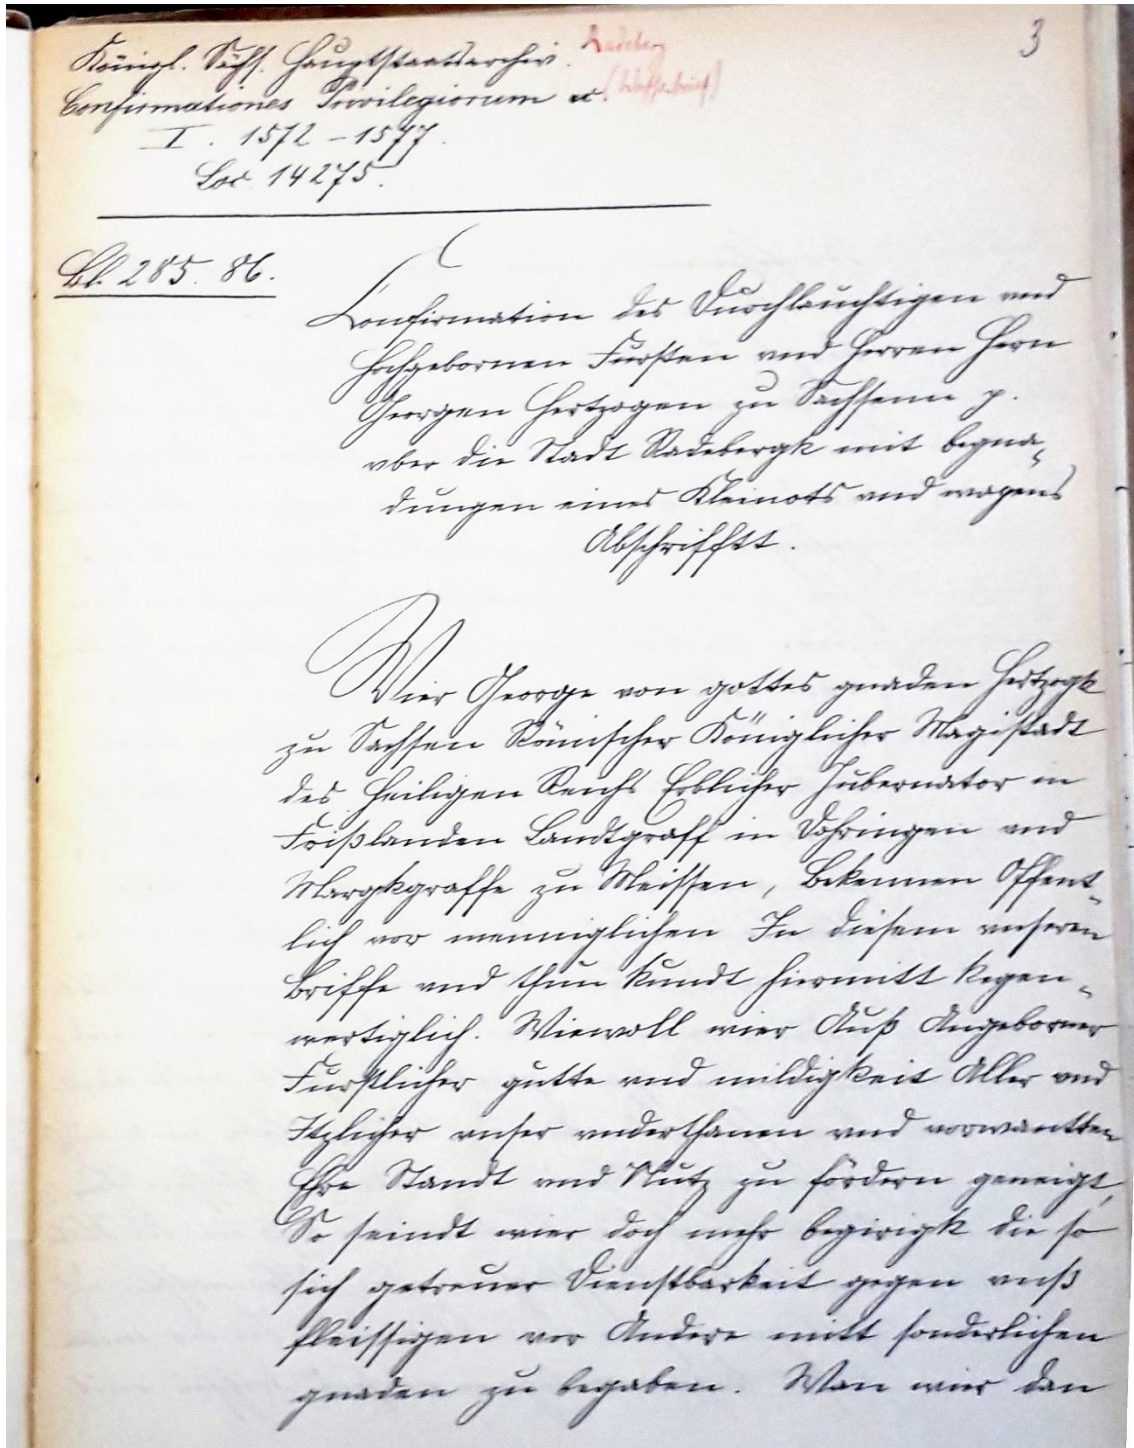 3
Königl. Sächs. Hauptstaatsarchiv. Radeberg
Confirmationes Privilegiorum ec. (Wappenbrief)
I. 1572 – 1577.
Loc. 14275.
Bl. 285. 86.
Confirmation des Durchlauchtigen vnd
Hochgebornen Fursten vnd Herren Hern
Georgen Hertzogen zu Sachsenn p.
vber die Stadt Radebergk mit begna-
dungen eines Kleinots vnd wapens
Abschrifftt.
Wier George von gottes gnaden Hertzogk
zu Sachsen Römischer Königlicher Magistadt
des Heiligen Reichs Erblicher Jubernator in
Frißlanden Landtgraff in Dohringen vnd
Margkgraffe zu Meissen, Bekennen Offent-
lich vor menniglichen In diesem vnseren
Briffe vnd thun kundt hiermitt kegen-
wertiglich. Wiewoll wier Auß Angeborner
Furstlicher gutte vnd mildigkeit Aller vnd
Itzlicher vnser vnderthanen vnd vorwantten
Ehre Standt vnd Nutz zu fördern geneigt,
So seindt wier doch mehr begirigk die so
sich getreuer Dienstbarkeit gegen vnß
fleissigen vor Andere mitt sonderlichen
gnaden zu begaben. Wan wier dan